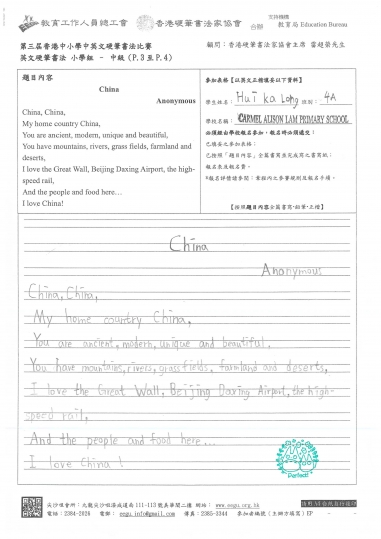 教育工作人員總工會
香港硬筆書法家協會
合辦
支持機構
教育局 Education Bureau
第三屆香港中小學中英文硬筆書法比賽
顧問：香港硬筆書法家協會主席
英文硬筆書法 小學組 - 中級 (P.3至P.4)
題目內容
China
Anonymous
China, China,
My home country China,
You are ancient, modern, unique and beautiful,
You have mountains, rivers, grass fields, farmland and
deserts,
I love the Great Wall, Beijing Daxing Airport, the high-
speed rail,
And the people and food here…
I love China!
參加表格【以英文正楷填妥以下資料】
學生姓名： Hui Ka Long 班別： 4A
學校名稱： CARMEL ALISON LAM PRIMARY SCHOOL
必須經由學校報名參加，報名時必須遞交：
已填妥之參加表格；
【按照題目內容全篇書寫-鉛筆，正楷】
China
Anonymous
China, China,
My home country China,
You are ancient, modern, unique and beautiful.
You have mountains, rivers, grass fields, farmland and deserts,
I love the Great Wall, Beijing Daxing Airport, the high-
speed rail,
And the people and food here...
I love China!
Perfect!
尖沙咀會所：九龍尖沙咀漆咸道南111-113號 網址： www.eegu.org.hk
電話：2384-2026 電郵： eegu.info@gmail.com 傳真：2385-3344 參加者編號（主辦方填寫）EP - -